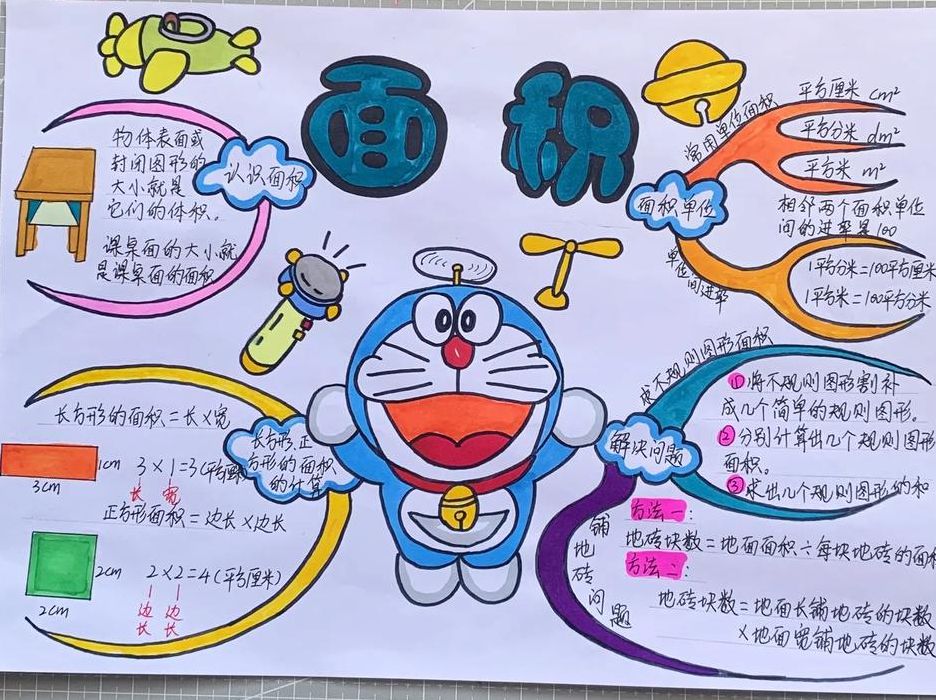 面积
认识面积
物体表面或
封闭图形的
大小就是
它们的体积。
课桌面的大小就
是课桌面的面积
面积单位
常用单位面积
平方厘米 cm²
平方分米 dm²
平方米 m²
单位间进率
相邻两个面积单位
间的进率是100
1平方分米=100平方厘米
1平方米=100平方分米
长方形、正
方形的面积
的计算
长方形的面积=长×宽
1cm
3cm
3×1=3(平方厘米
长 宽
正方形面积=边长×边长
2cm
2cm
2×2=4(平方厘米)
边长 边长
解决问题
求不规则图形面积
①将不规则图形割补
成几个简单的规则图形。
②分别计算出几个规则图形
面积。
③求出几个规则图形的和
铺地砖问题
方法一:
地砖块数=地面面积÷每块地砖的面积
方法二:
地砖块数=地面长铺地砖的块数
×地面宽铺地砖的块数